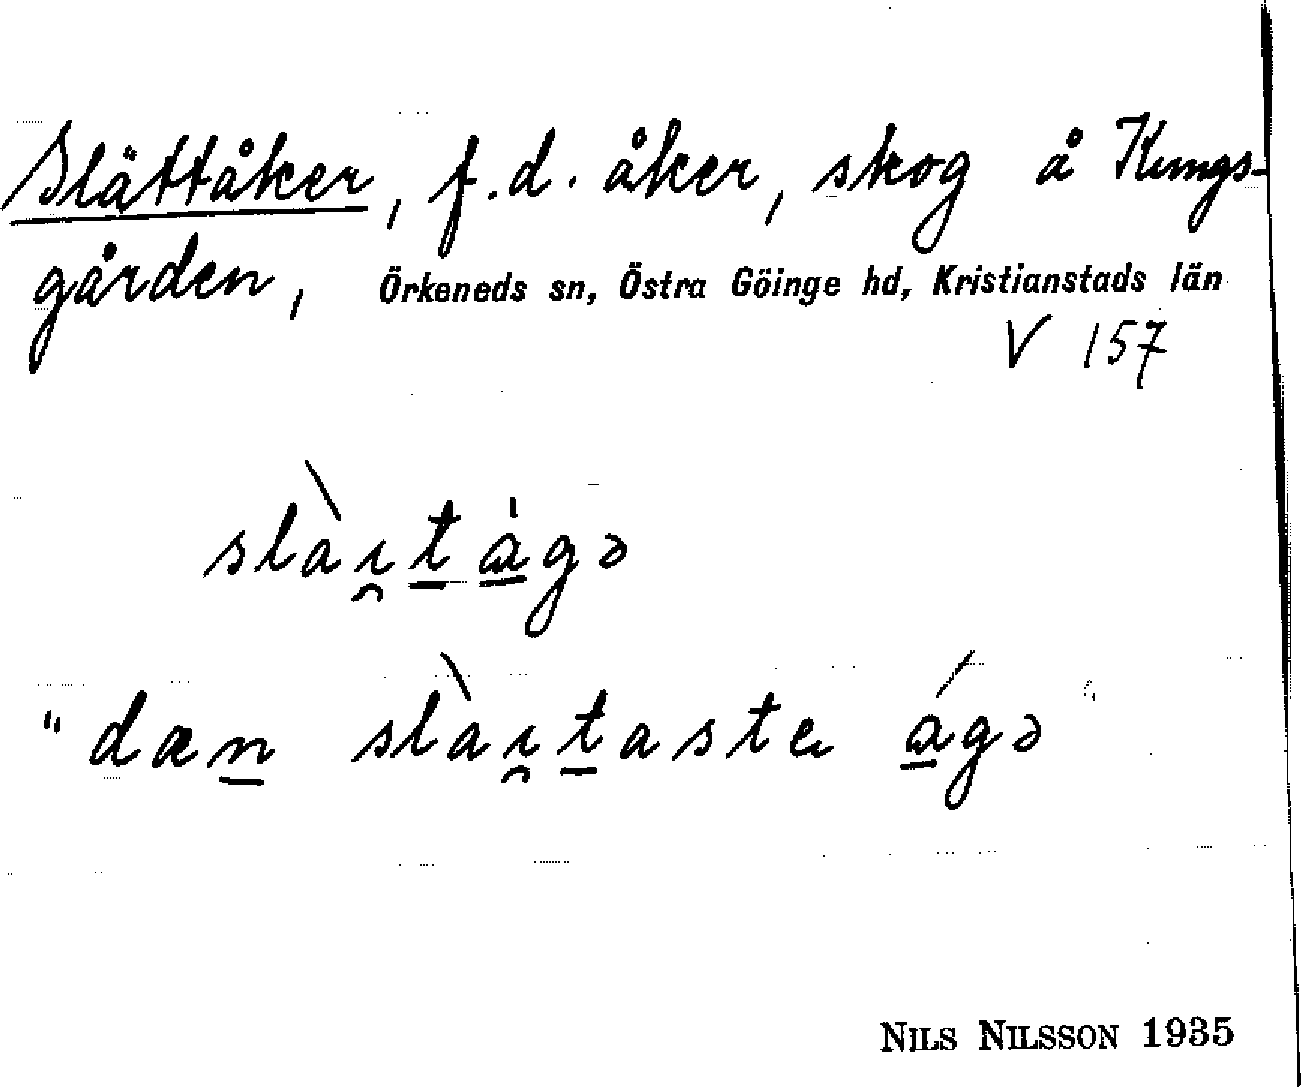 Slättåker, f.d. åker, skog å Kungs-
gården, Örkeneds sn, Östra Göinge hd, Kristianstads län
V 157
slàı̯t̲ǻ̲gə
"dæn̲ slàı̯t̲aste ǻ̲gə"
NILS NILSSON 1935